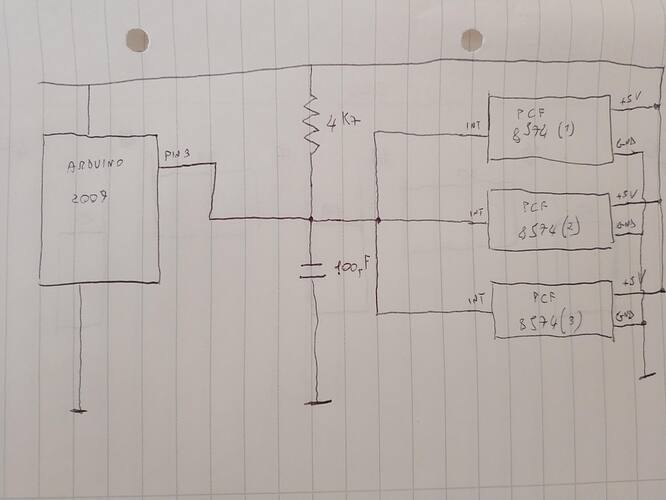 ARDUINO
2009
PIN 3
4K7
100pF
INT
PCF
8574 (1)
+5V
GND
INT
PCF
8574 (2)
+5V
GND
INT
PCF
8574 (3)
+5V
GND